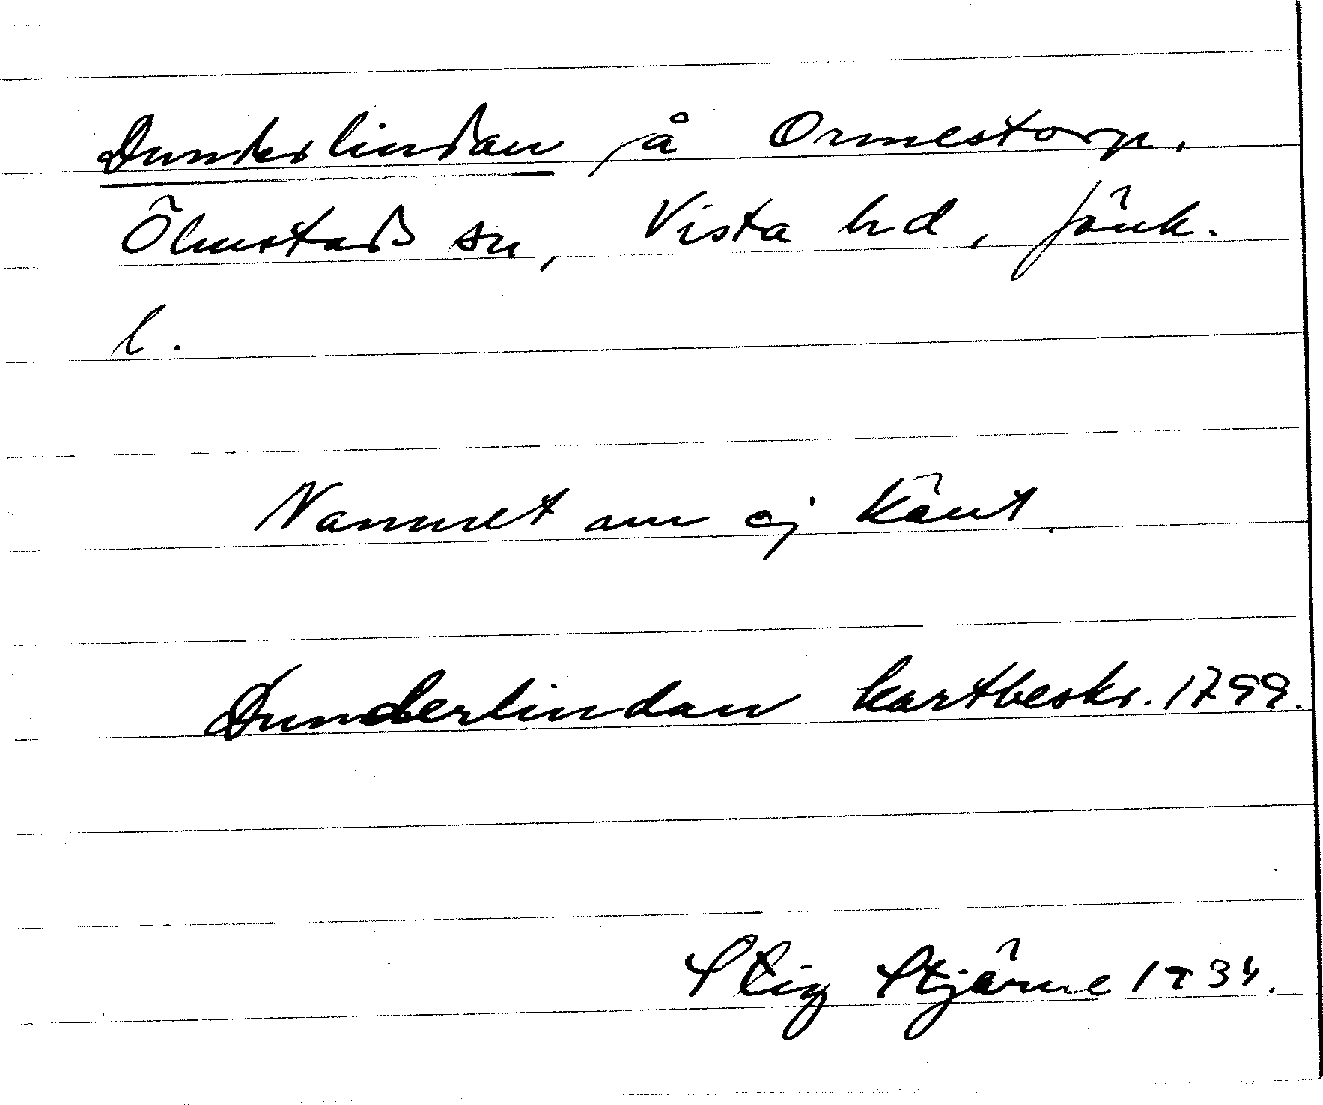 Dunderlindan, å Ormestorp.
Ölmstads sn, Vista hd, Jönk.
l.
Namnet nu ej känt.
Dunderlindan kartbeskr. 1799.
Stig Stjärne 1934.